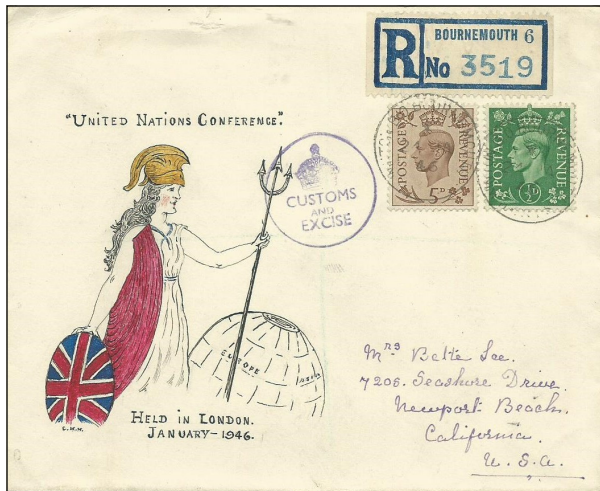 BOURNEMOUTH 6
R No 3519
"UNITED NATIONS CONFERENCE".
CUSTOMS
AND
EXCISE
POSTAGE REVENUE
5D
POSTAGE REVENUE
½D
EUROPE
HELD IN LONDON.
JANUARY-1946.
Mrs Bette See.
7206. Seashore Drive.
Newport Beach.
California.
U.S.a.